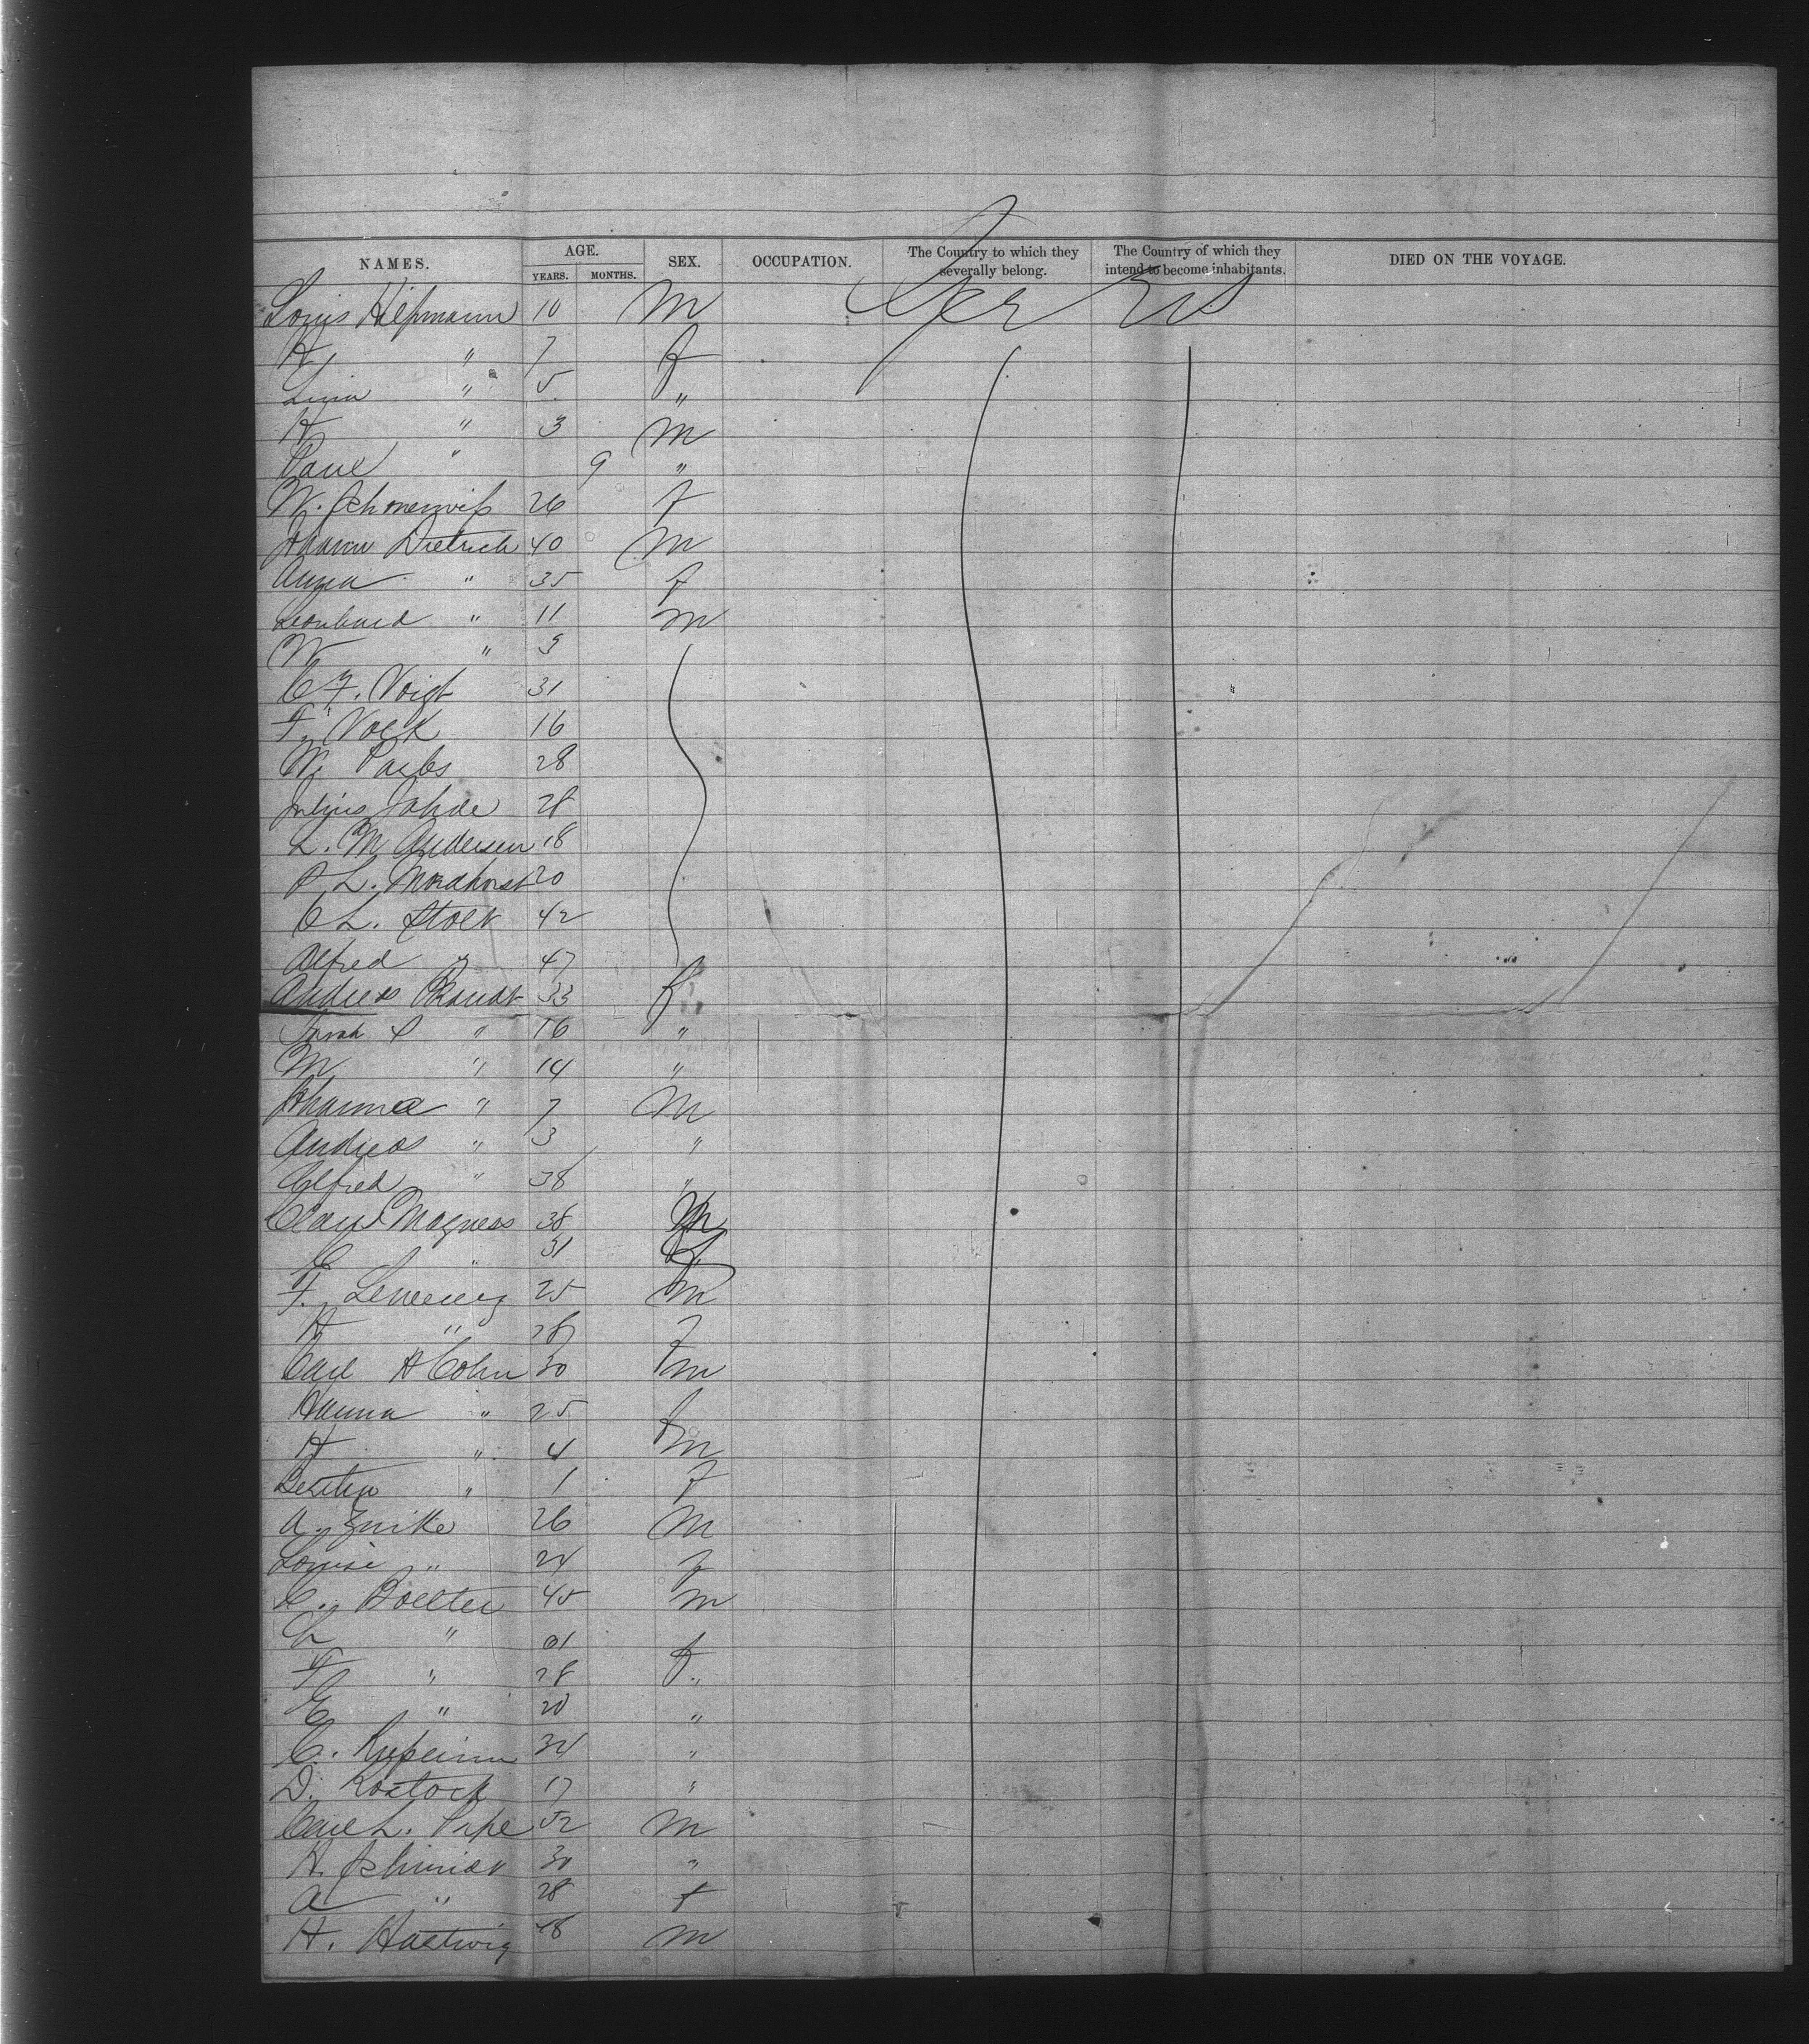 NAMES. AGE. YEARS. MONTHS. SEX. OCCUPATION. The Country to which they severally belong. The Country of which they intend to become inhabitants. DIED ON THE VOYAGE.
Louis 10 M Ger US
H " 7 f
Lina " 5 "
H " 3 M
Paul " 9 "
W. 26 f
Johann Dietrich 40 M
Anna " 35 f
Leonhard " 11 M
W " 3
C F. Voigt 31
F. Volk 16
W. 28
Julius Jahde 28
L. M Andersen 18
P L. Mordhorst 20
C L. 42
Alfred " 47
Andreas Brandt 33 f
Sarah C " 16 "
M " 14 "
Johannes " 7 M
Andreas " 3 "
Alfred " 38 "
Magness 38 M
C " 31 f
F. 25 M
H " 28 f
Carl H Cohn 30 M
Hanna " 25 f
H " 4 M
Bertha " 1 f
A. 26 M
Louise " 24 f
C. Boelter 45 M
" 
F " 28 f
E " 20 "
C. 34 "
D. Rostock 17 "
Carl L. Pape 52 M
H. Schmidt 30 "
A " 28 f
H. Hartwig 48 M